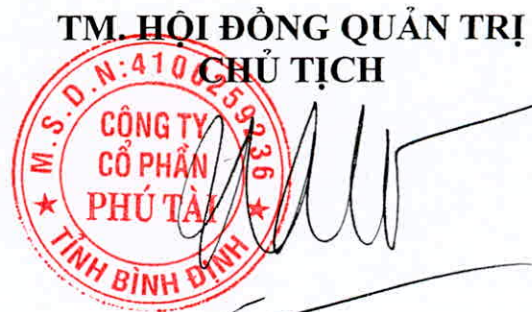 TM. HỘI ĐỒNG QUẢN TRỊ
CHỦ TỊCH
M.S.D.N:4100259236
CÔNG TY
CỔ PHẦN
PHÚ TÀI
TỈNH BÌNH ĐỊNH